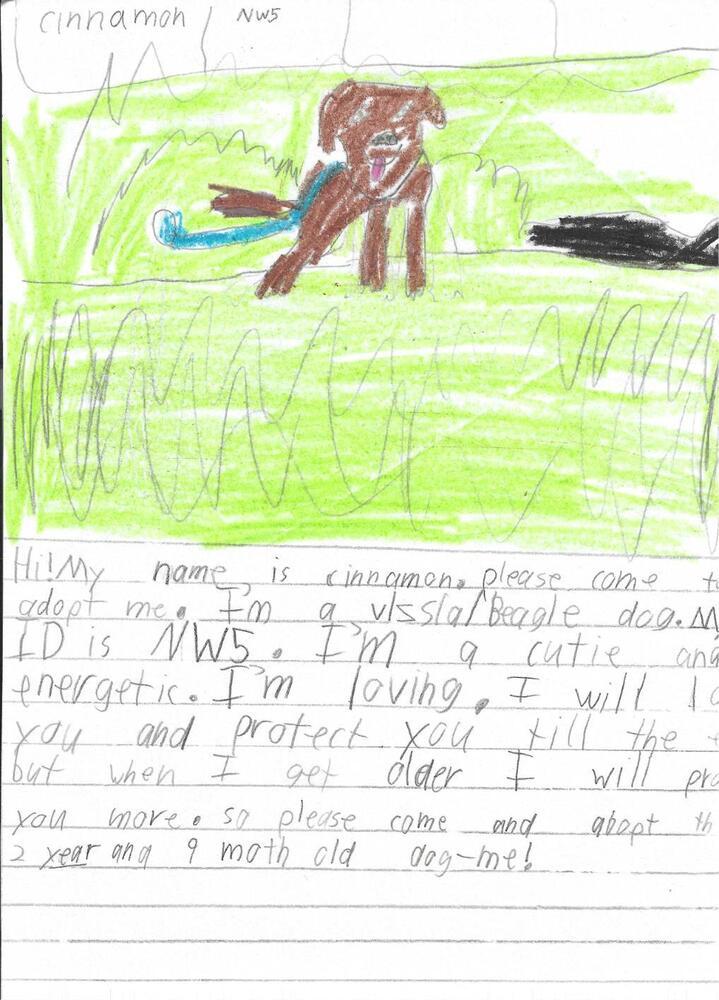 cinnamon NW5
Hi! My name is cinnamon. please come t
adopt me. I'm a vIssla/Beagle dog. M
ID is NW5. I'm a cutie and
energetic. I'm loving. I will lo
you and protect you till the
but when I get older I will pro
you more. so please come and abopt th
2 year ana 9 moth old dog-me!